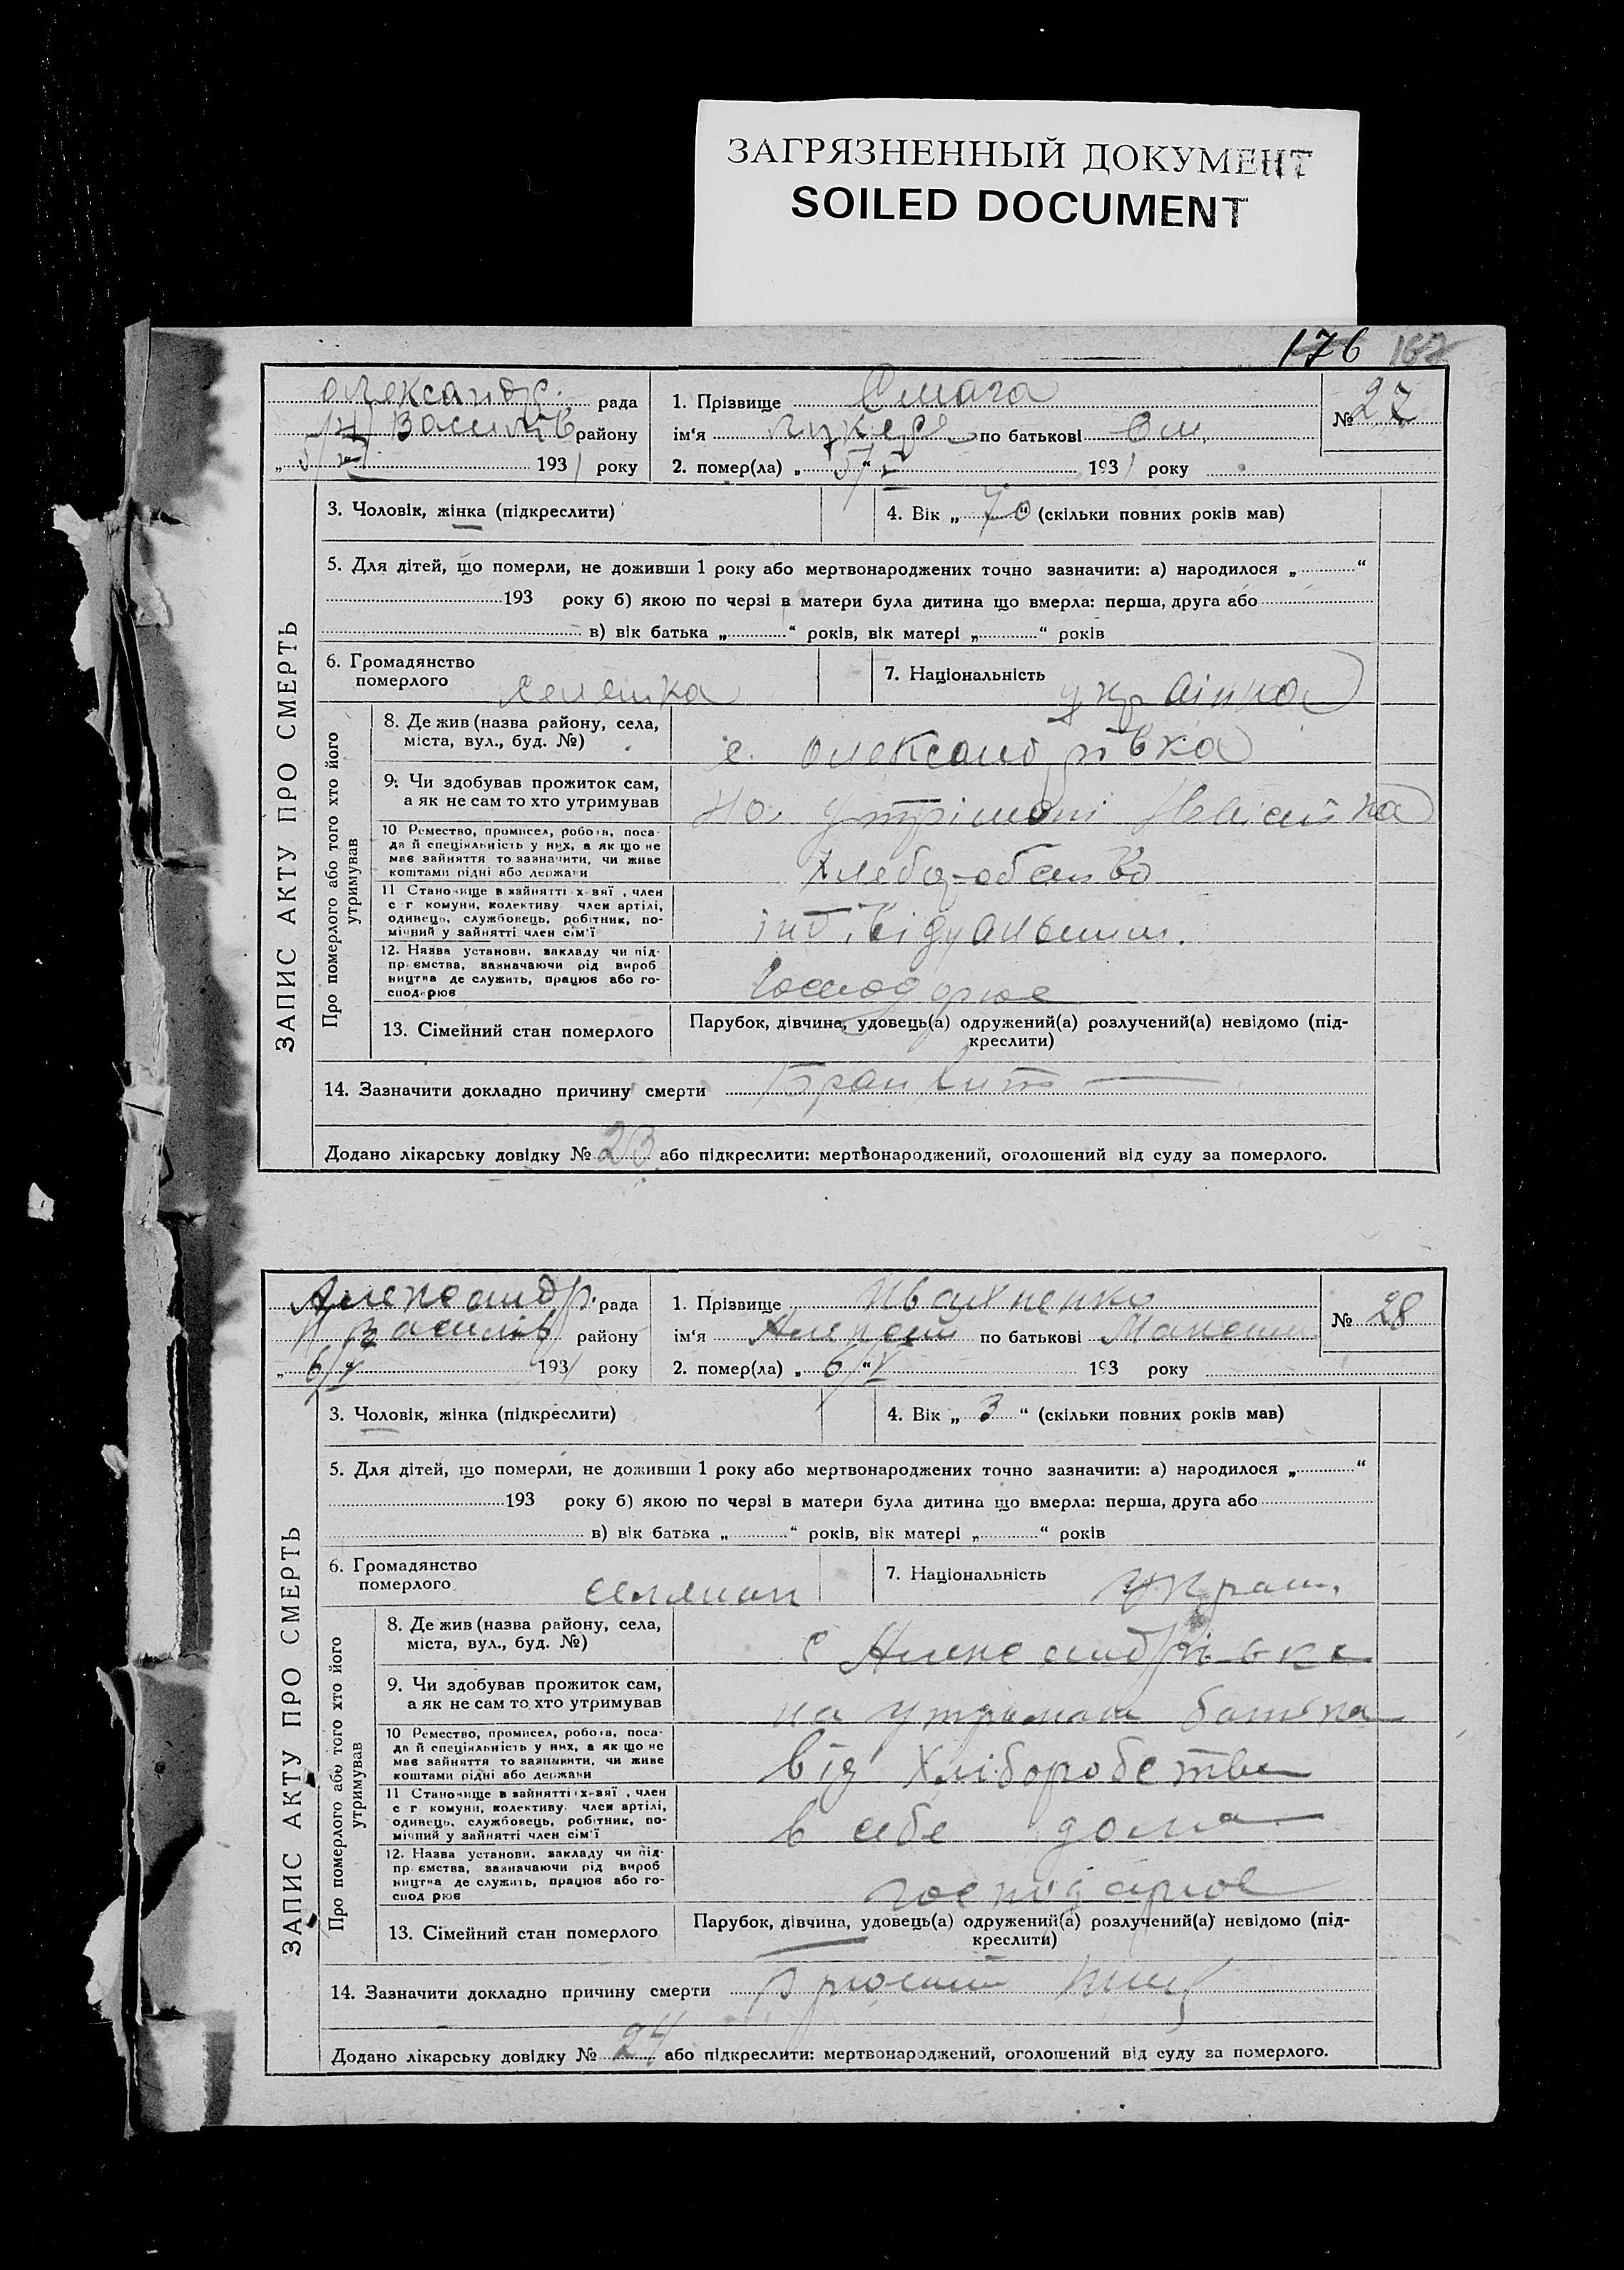 ЗАГРЯЗНЕННЫЙ ДОКУМЕНТ
SOILED DOCUMENT
176 162
ЗАПИС АКТУ ПРО СМЕРТЬ
Олександр. рада
Н Василів району
„5/V 1931 року
1. Прізвище Смага
ім‘я по батькові
№ 27
2. помер(ла) „5/“ V 1931 року
3. Чоловік, жінка (підкреслити)
4. Вік „70“ (скільки повних років мав)
5. Для дітей, що померли, не доживши 1 року або мертвонароджених точно зазначити: а) народилося „ “
193 року б) якою по черзі в матери була дитина що вмерла: перша, друга або
в) вік батька „ “ років, вік матері „ “ років
6. Громадянство
померлого селянка
7. Національність українка
Про померлого або того хто його
утримував
8. Де жив (назва району, села,
міста, вул., буд. №)
с. Олександрівка
9. Чи здобував прожиток сам,
а як не сам то хто утримував
На утрімані
10 Ремество, промисел, робота, поса-
да й спеціяльність у них, а як що не
має зайняття то зазначити, чи живе
коштами рідні або держави
11 Становище в зайнятті х-зяї , член
с г комуни, колективу член артілі,
одинець, службовець, робітник, по-
мічний у зайнятті член сім‘ї
12. Назва установи, закладу чи під-
пр ємства, зазначаючи рід вироб
ництва де служить, працює або го-
сподарює
господарює
13. Сімейний стан померлого
Парубок, дівчина, удовець(а) одружений(а) розлучений(а) невідомо (під-
креслити)
14. Зазначити докладно причину смерти
Додано лікарську довідку № 23 або підкреслити: мертвонароджений, оголошений від суду за померлого.
ЗАПИС АКТУ ПРО СМЕРТЬ
Александр. рада
Н Василів району
„6/V 1931 року
1. Прізвище Ивахненко
ім‘я Алексей по батькові Максим
№ 28
2. помер(ла) „6/“V 193 року
3. Чоловік, жінка (підкреслити)
4. Вік „3“ (скільки повних років мав)
5. Для дітей, що померли, не доживши 1 року або мертвонароджених точно зазначити: а) народилося „ “
193 року б) якою по черзі в матери була дитина що вмерла: перша, друга або
в) вік батька „ “ років, вік матері „ “ років
6. Громадянство
померлого селянин
7. Національність украин.
Про померлого або того хто його
утримував
8. Де жив (назва району, села,
міста, вул., буд. №)
с Александрівка
9. Чи здобував прожиток сам,
а як не сам то хто утримував
на утримані батька
10 Ремество, промисел, робота, поса-
да й спеціяльність у них, а як що не
має зайняття то зазначити, чи живе
коштами рідні або держави
від хліборобства
11 Становище в зайнятті х-зяї , член
с г комуни, колективу член артілі,
одинець, службовець, робітник, по-
мічний у зайнятті член сім‘ї
в себе дома
12. Назва установи, закладу чи під-
пр ємства, зазначаючи рід вироб
ництва де служить, працює або го-
спод рює
господарює
13. Сімейний стан померлого
Парубок, дівчина, удовець(а) одружений(а) розлучений(а) невідомо (під-
креслити)
14. Зазначити докладно причину смерти Брюшний тиф
Додано лікарську довідку № 24 або підкреслити: мертвонароджений, оголошений від суду за померлого.